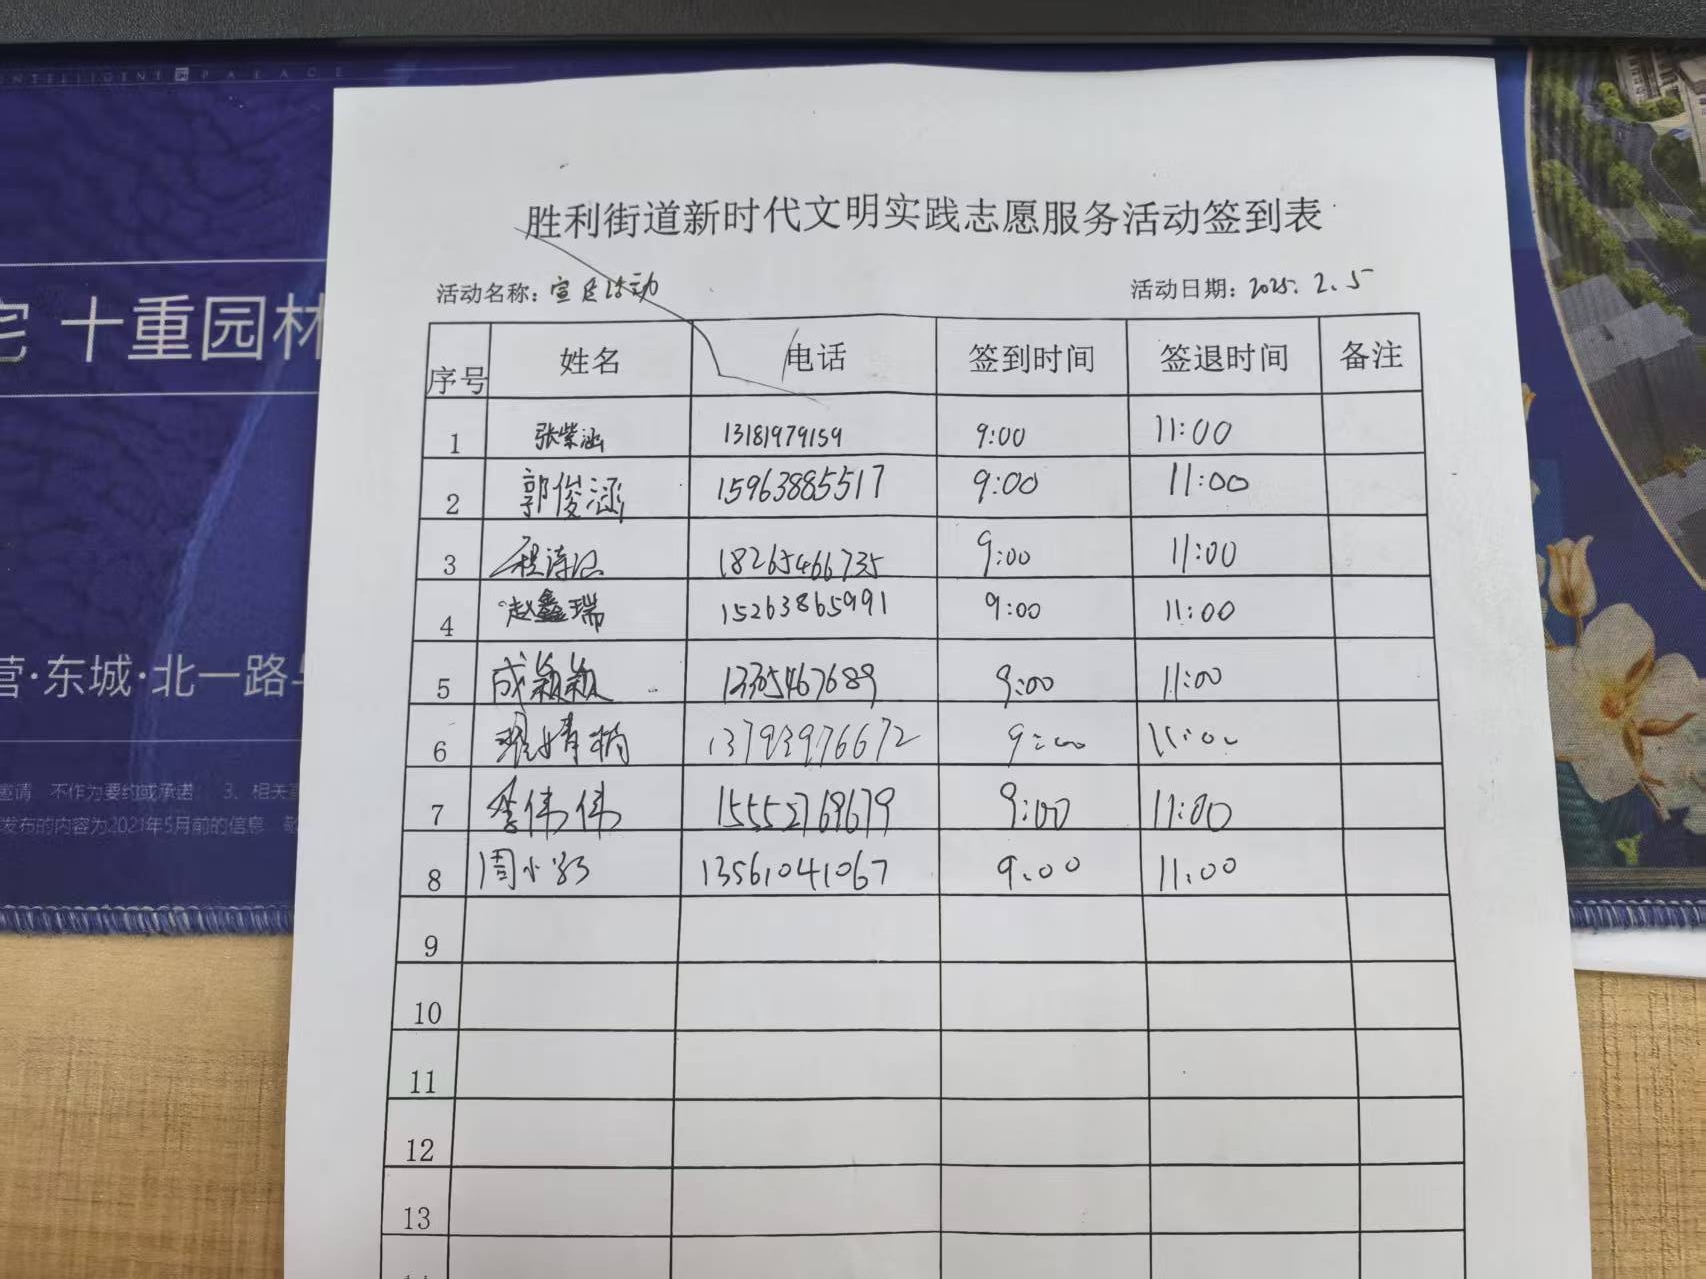 INTELLIGENT PALACE
宅 十重园林
营·东城·北一路与
邀请 不作为要约或承诺 3、相关
发布的内容为2021年5月前的信息 敬
胜利街道新时代文明实践志愿服务活动签到表
活动名称：宣传活动 活动日期：2025.2.5
序号 姓名 电话 签到时间 签退时间 备注
1 张紫涵 13181979159 9:00 11:00
2 郭俊涵 15963885517 9:00 11:00
3 程诗汉 18265466735 9:00 11:00
4 赵鑫瑞 15263865991 9:00 11:00
5 成颖颖 9:00 11:00
6 13793976672 9:00 11:00
7 李伟伟 15552769679 9:00 11:00
8 周小 13561041067 9:00 11:00
9
10
11
12
13